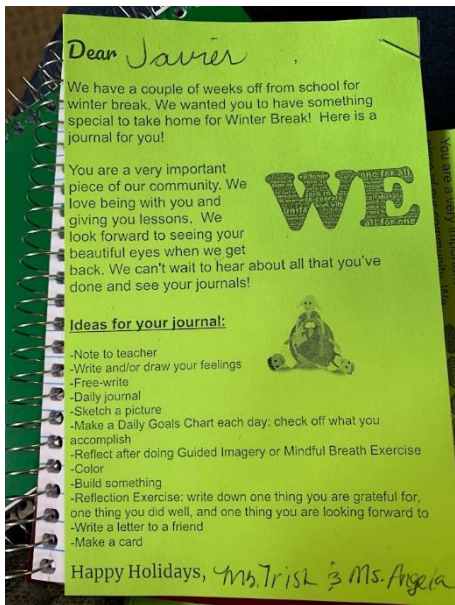 Dear Javier,
We have a couple of weeks off from school for
winter break. We wanted you to have something
special to take home for Winter Break!  Here is a
journal for you!
You are a very important
piece of our community. We
love being with you and
giving you lessons.  We
look forward to seeing your
beautiful eyes when we get
back. We can't wait to hear about all that you've
done and see your journals!
WE
one for all
all for one
Ideas for your journal:
-Note to teacher
-Write and/or draw your feelings
-Free-write
-Daily journal
-Sketch a picture
-Make a Daily Goals Chart each day: check off what you
accomplish
-Reflect after doing Guided Imagery or Mindful Breath Exercise
-Color
-Build something
-Reflection Exercise: write down one thing you are grateful for,
one thing you did well, and one thing you are looking forward to
-Write a letter to a friend
-Make a card
Happy Holidays, Ms. Trish & Ms. Angela
You are a very